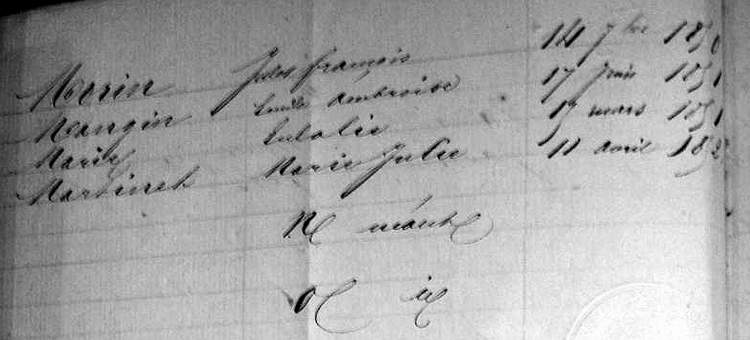 Morin Jules françois 14 7bre 1850
Mangin Emile Ambroise 17 Juin 1851
Marie Eulalie 17 mars 1851
Martinet Marie Julie 11 avril 1852
N néant
O id